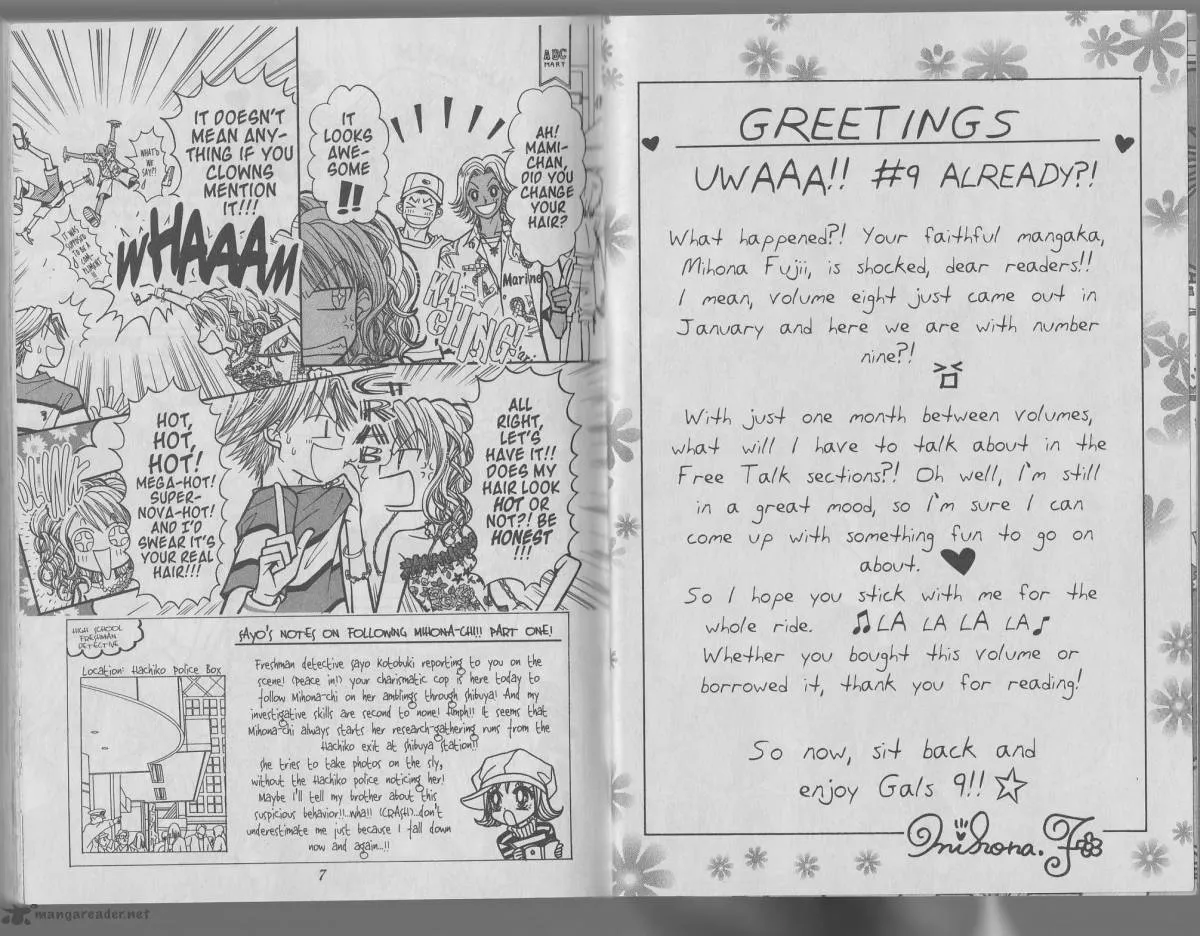 ABC
MART
AH!
MAMI-
CHAN,
DID YOU
CHANGE
YOUR
HAIR?
IT
LOOKS
AWE-
SOME
!!
Marine
KA-
CHING!
IT DOESN'T
MEAN ANY-
THING IF YOU
CLOWNS
MENTION
IT!!!
WHAT'D
WE
SAY?!
IT WAS
SUPPOSED
TO BE A
COM-
PLIMENT
WHAAAM
ALL
RIGHT,
LET'S
HAVE IT!!
DOES MY
HAIR LOOK
HOT OR
NOT?! BE
HONEST
!!!
GRAB
HOT,
HOT,
HOT!
MEGA-HOT!
SUPER-
NOVA-HOT!
AND I'D
SWEAR IT'S
YOUR REAL
HAIR!!!
HIGH SCHOOL
FRESHMAN
DETECTIVE
SAYO'S NOTES ON FOLLOWING MIHONA-CHI!! PART ONE!
Location: Hachiko Police Box
Freshman detective Sayo Kotobuki reporting to you on the
scene! (Peace in!) Your charismatic cop is here today to
follow Mihona-chi on her amblings through Shibuya! And my
investigative skills are second to none! Hmph!! It seems that
Mihona-chi always starts her research-gathering runs from the
Hachiko exit at Shibuya Station!!
She tries to take photos on the sly,
without the Hachiko police noticing her!
Maybe I'll tell my brother about this
suspicious behavior!!..wha!! (CRASH)...don't
underestimate me just because I fall down
now and again...!!
7
GREETINGS
UWAAA!! #9 ALREADY?!
What happened?! Your faithful mangaka,
Mihona Fujii, is shocked, dear readers!!
I mean, volume eight just came out in
January and here we are with number
nine?!
With just one month between volumes,
what will I have to talk about in the
Free Talk sections?! Oh well, I'm still
in a great mood, so I'm sure I can
come up with something fun to go on
about. ♥
So I hope you stick with me for the
whole ride. ♫ LA LA LA LA ♪
Whether you bought this volume or
borrowed it, thank you for reading!
So now, sit back and
enjoy Gals 9!! ☆
Mihona. F
mangareader.net